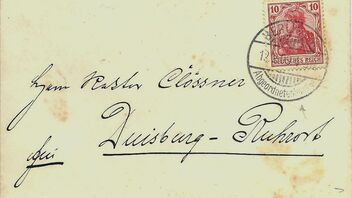 10 10
DEUTSCHES REICH
Abgeordneten
Herrn Pastor Clössner
Duisburg-Ruhrort